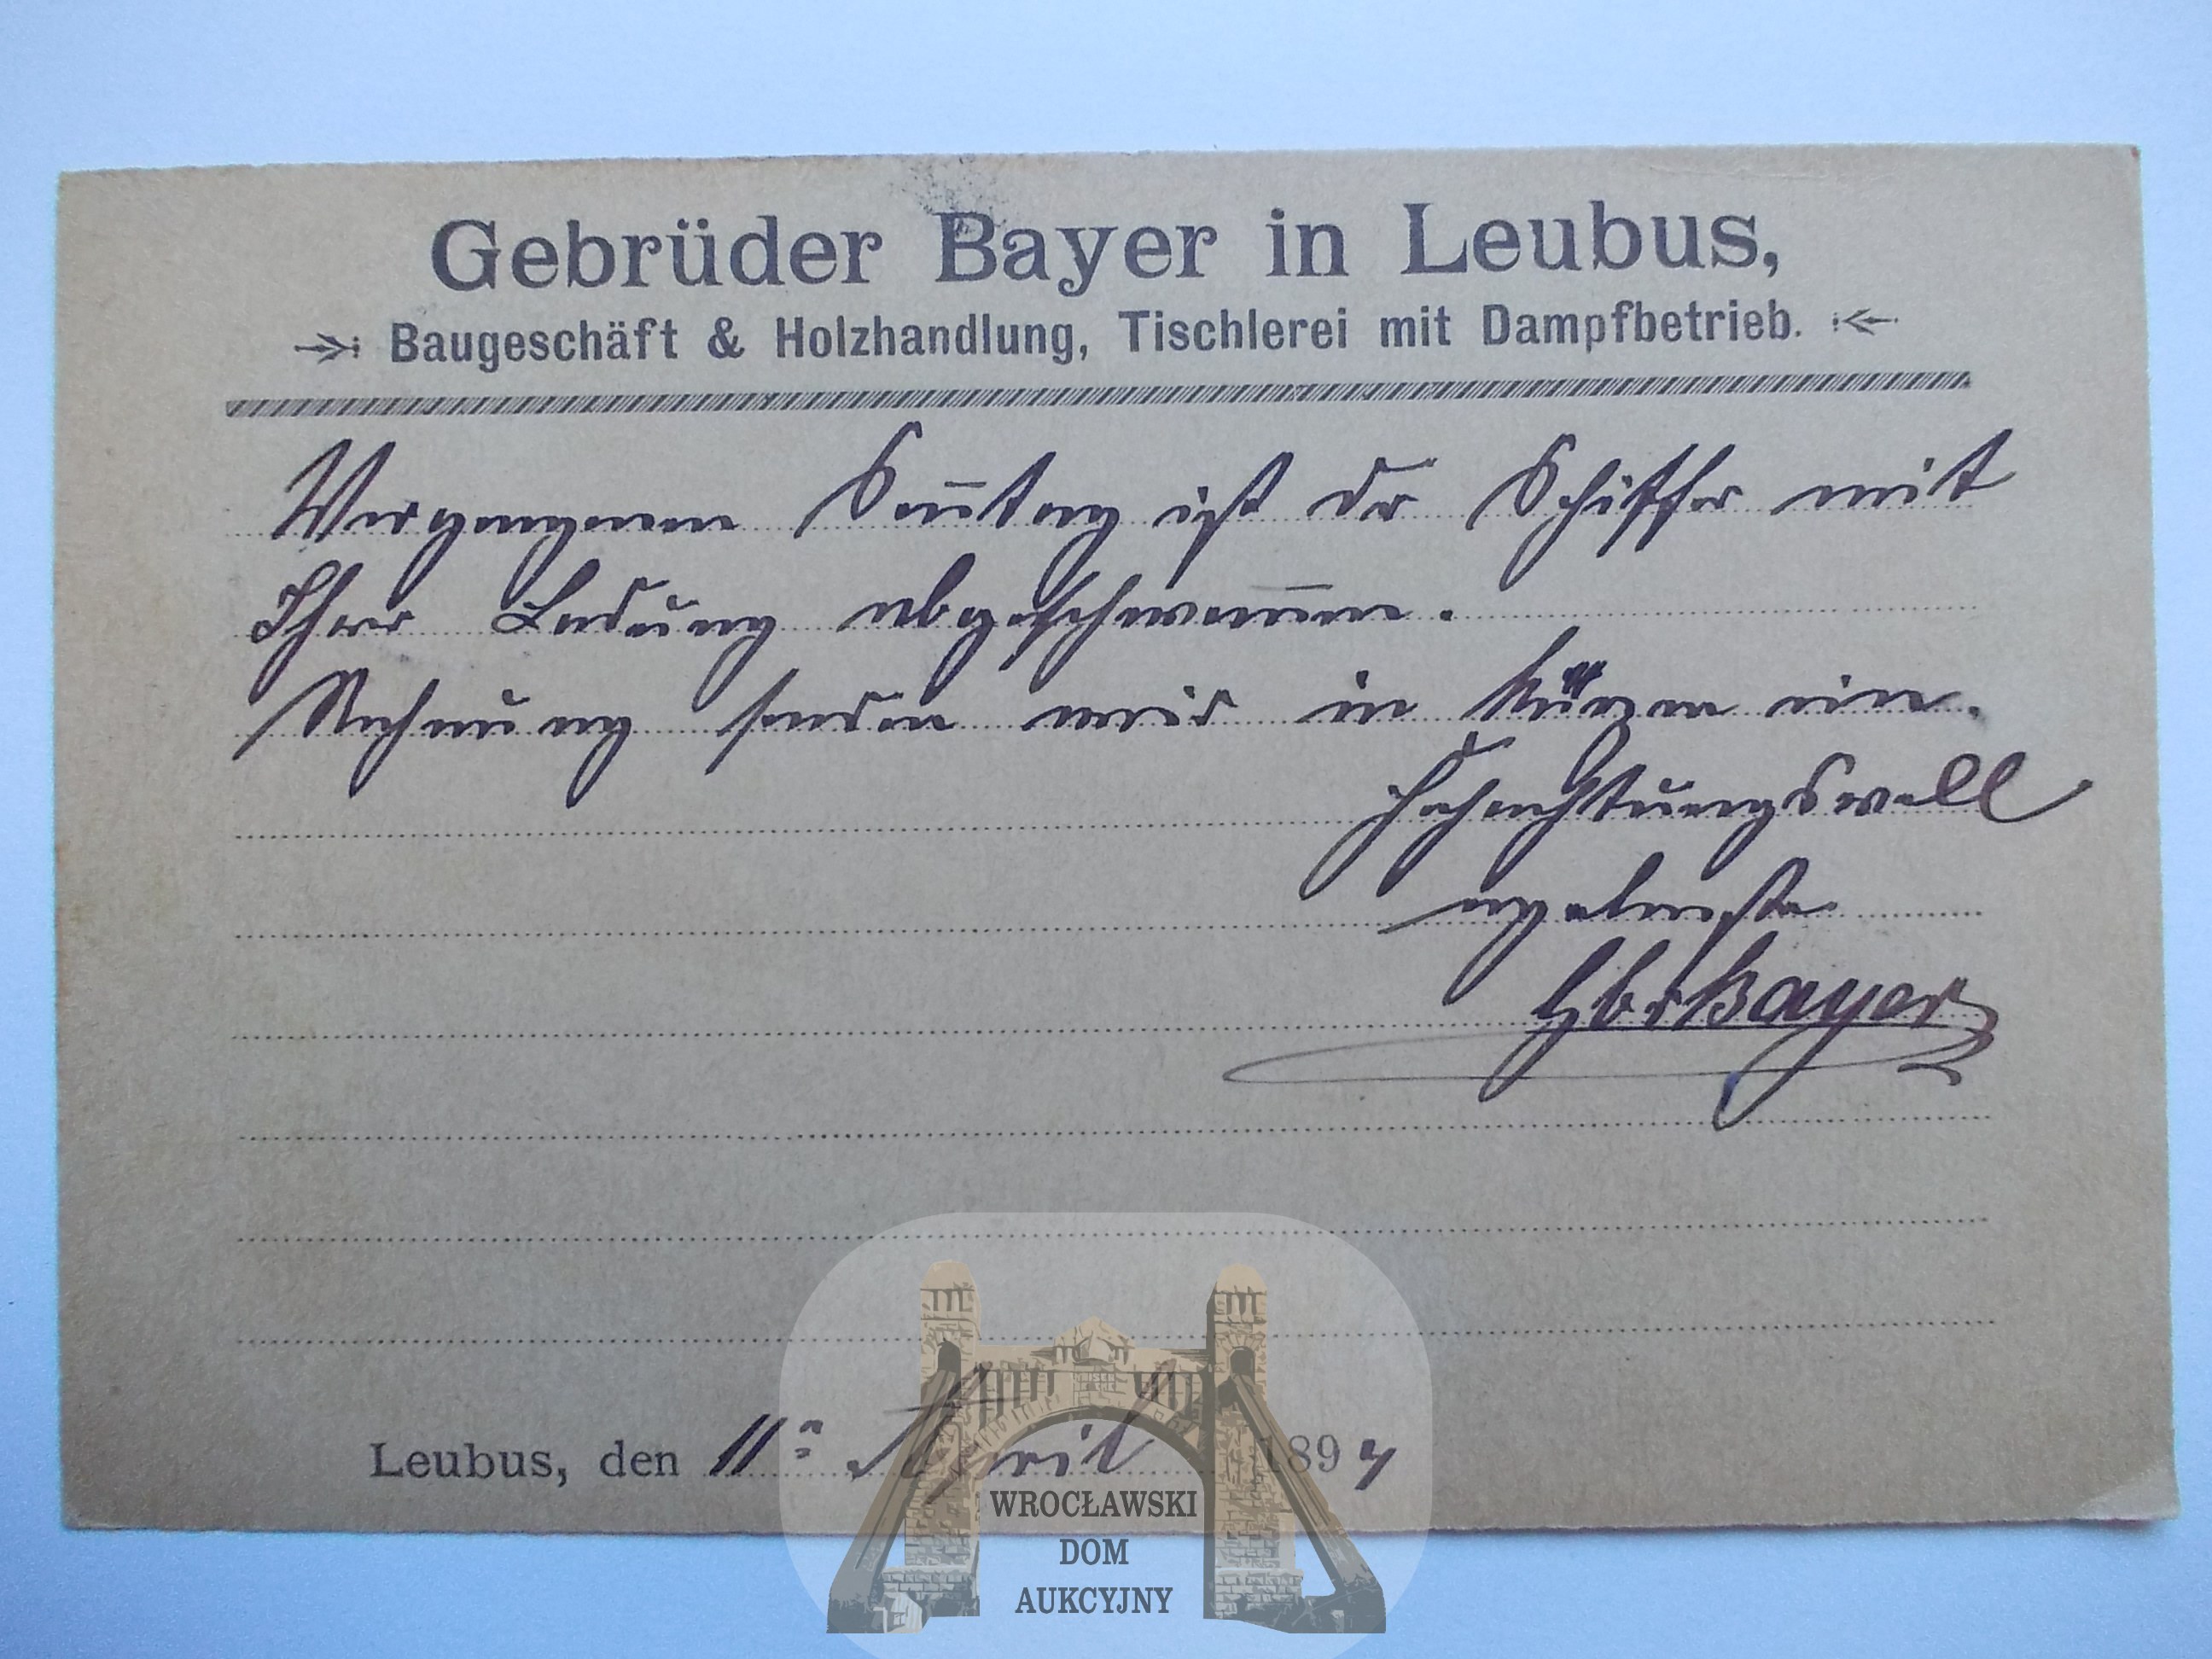 Gebrüder Bayer in Leubus,
Baugeschäft & Holzhandlung, Tischlerei mit Dampfbetrieb.
Vergangenen Son̄tag ist der Schiffer mit
Ihrer Ladung abgeschwom̄en.
Rechnung senden wir in Kürzen ein.
Hochachtungsvoll
ergebenste
Gbr Bayer
Leubus, den 11n April 1894
WROCŁAWSKI
DOM
AUKCYJNY